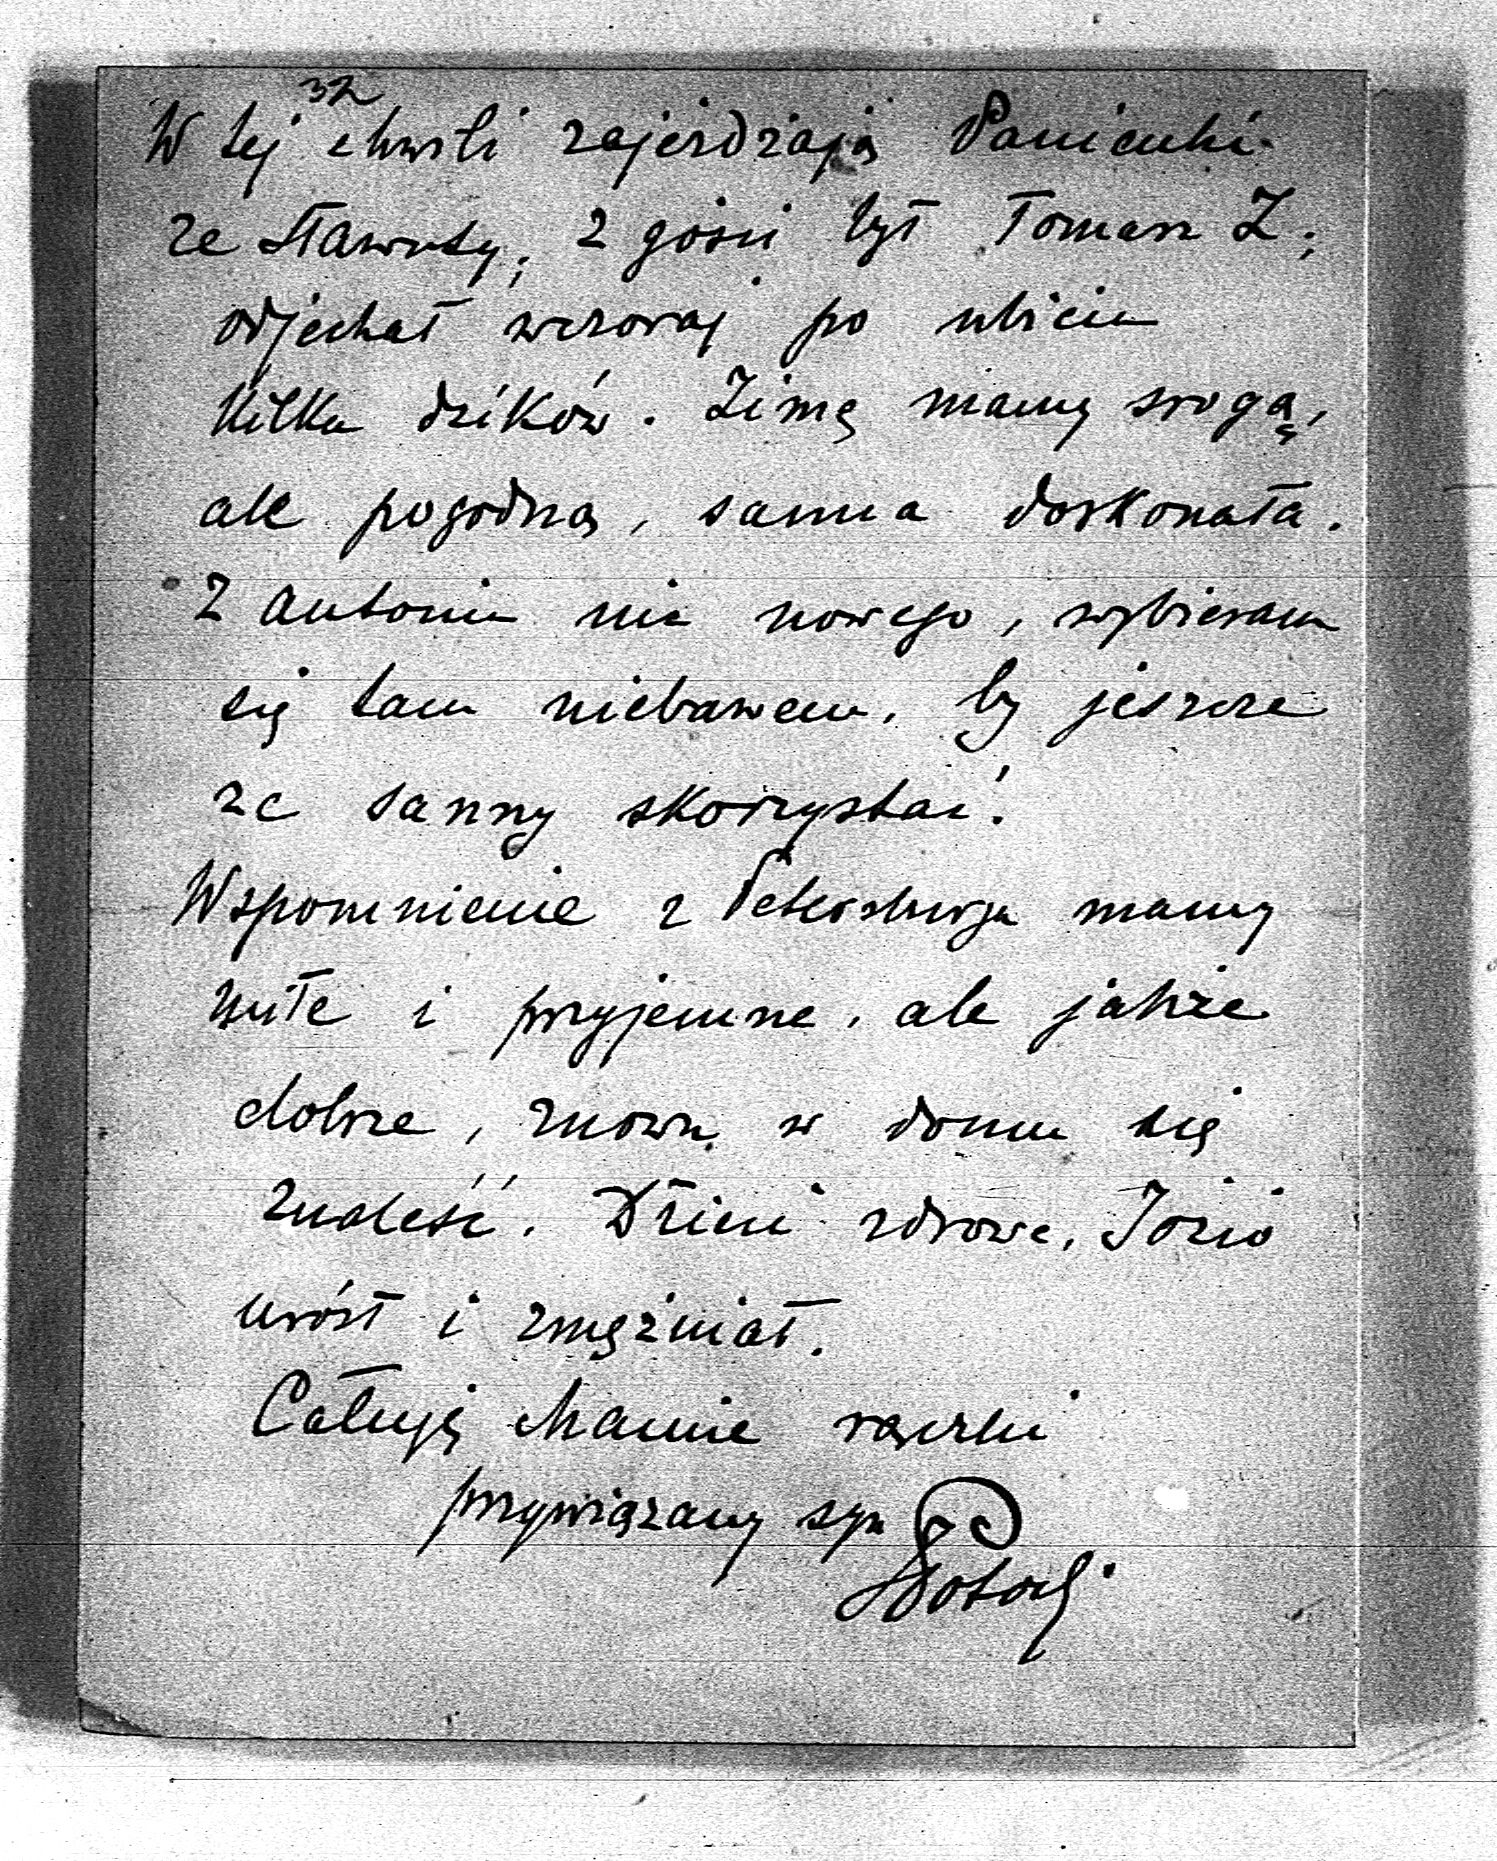 32
W tej chwili zajeżdżają Panienki
ze Sławuty, z gości był Tomasz Z;
odjechał wczoraj po ubiciu
kilku dzików. Zimę mamy srogą,
ale pogodną, sanna doskonała.
Z Antonin nic nowego, wybieram
się tam niebawem, by jeszcze
ze sanny skorzystać.
Wspomnienie z Petersburga mamy
miłe i przyjemne, ale jakże
dobrze, znowu w domu się
znaleść. Dzieci zdrowe, Józio
urósł i zmężniał.
Całuję Mamie rączki
przywiązany syn
JPotocki